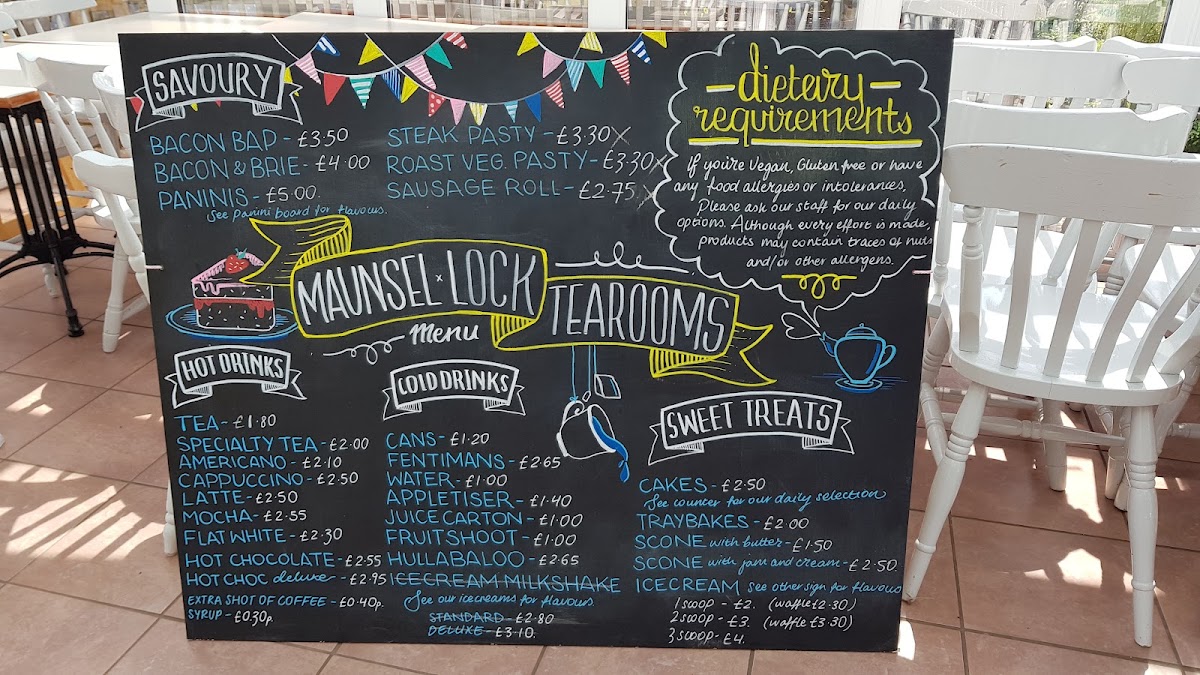 SAVOURY
BACON BAP - £3.50
BACON & BRIE - £4.00
PANINIS - £5.00.
See panini board for flavours.
STEAK PASTY - £3.30 X
ROAST VEG. PASTY - £3.30 X
SAUSAGE ROLL - £2.75 X
dietary
requirements
If you're Vegan, Gluten free or have
any food allergies or intolerances,
Please ask our staff for our daily
options. Although every effort is made,
products may contain traces of nuts
and/or other allergens.
MAUNSEL x LOCK
TEAROOMS
Menu
HOT DRINKS
TEA - £1.80
SPECIALTY TEA - £2.00
AMERICANO - £2.10
CAPPUCCINO - £2.50
LATTE - £2.50
MOCHA - £2.55
FLAT WHITE - £2.30
HOT CHOCOLATE - £2.55
HOT CHOC deluxe - £2.95
EXTRA SHOT OF COFFEE - £0.40p.
SYRUP - £0.30p.
COLD DRINKS
CANS - £1.20
FENTIMANS - £2.65
WATER - £1.00
APPLETISER - £1.40
JUICE CARTON - £1.00
FRUIT SHOOT - £1.00
HULLABALOO - £2.65
ICECREAM MILKSHAKE
See our icecreams for flavours.
STANDARD - £2.80
DELUXE - £3.10.
SWEET TREATS
CAKES - £2.50
See counter for our daily selection
TRAYBAKES - £2.00
SCONE with butter - £1.50
SCONE with jam and cream - £2.50
ICECREAM see other sign for flavours
1 scoop - £2. (waffle £2.30)
2 scoop - £3. (waffle £3.30)
3 scoop - £4.